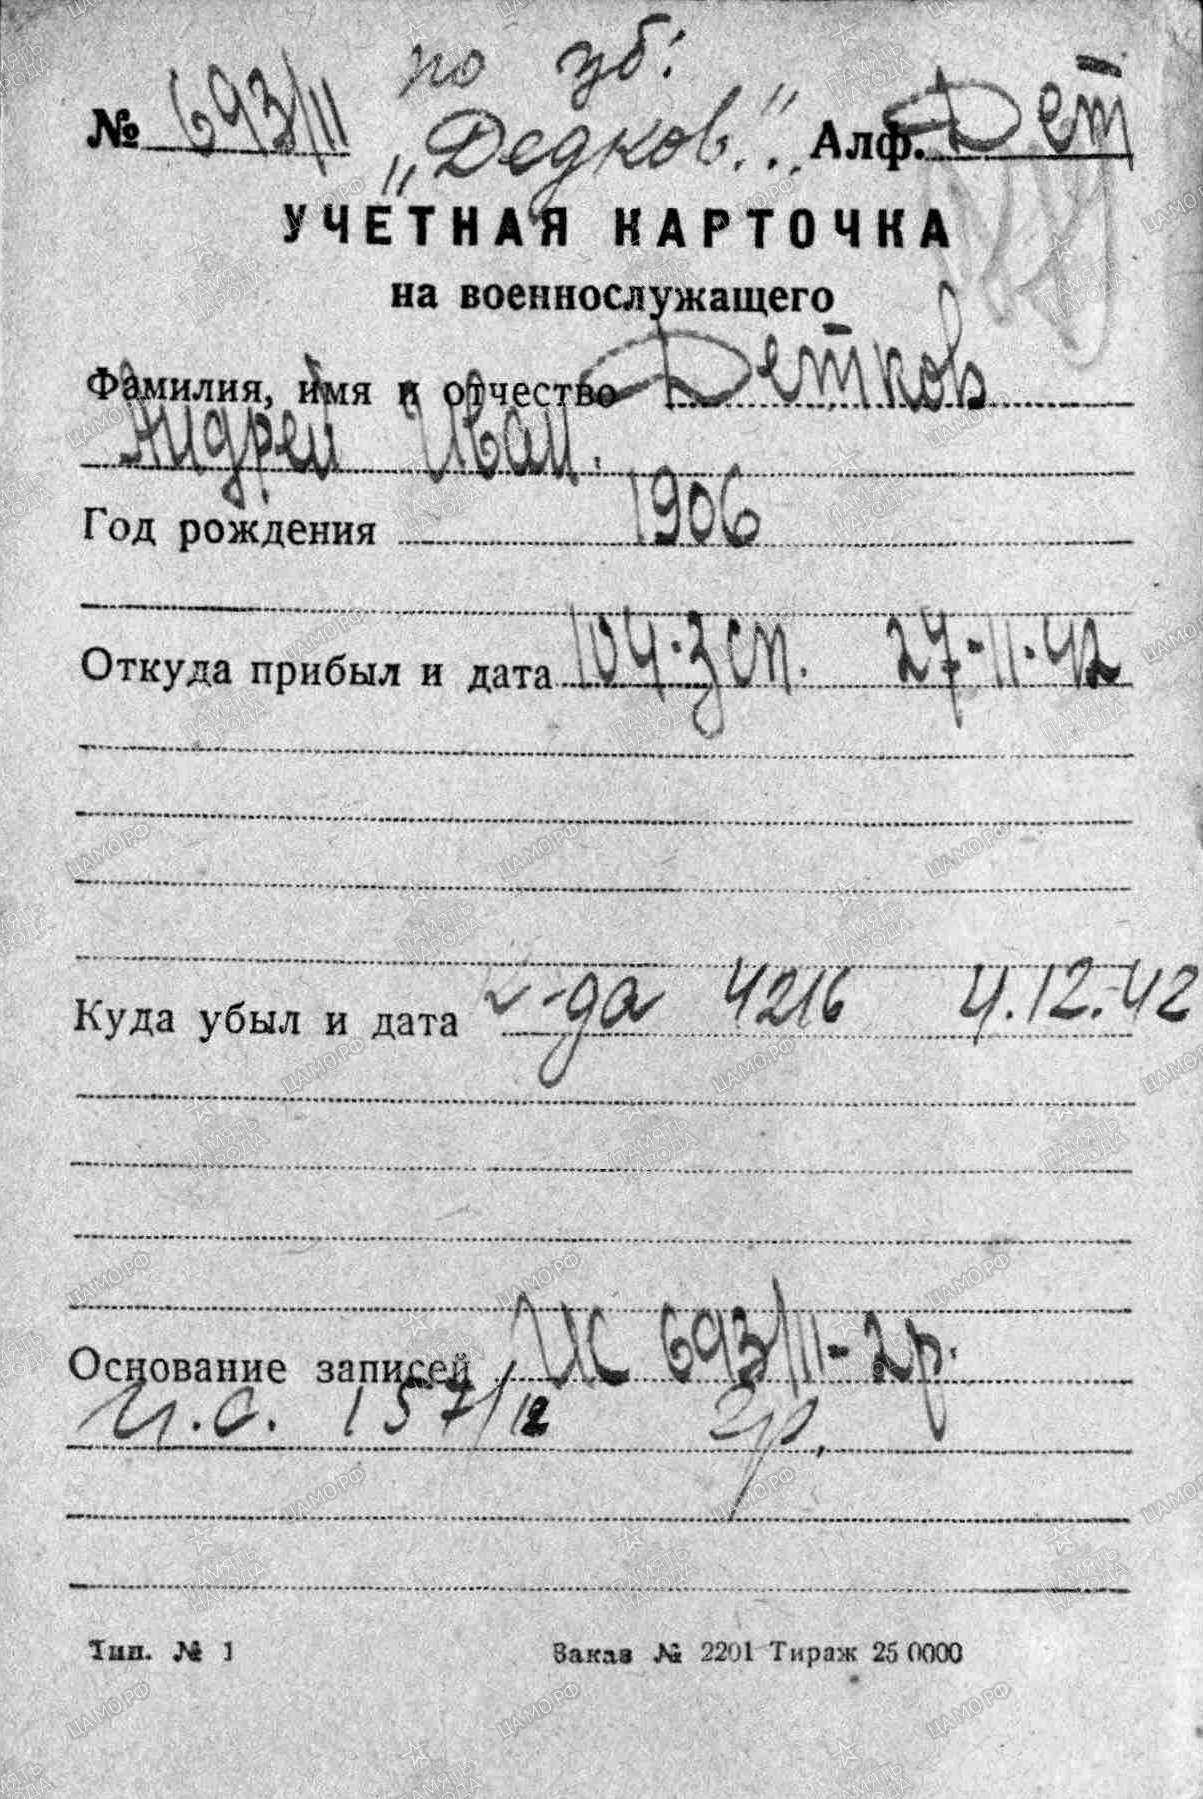 по уб:
№ 693/11 „Дедков." Алф. Дет
УЧЕТНАЯ КАРТОЧКА
на военнослужащего
Фамилия, имя и отчество Детков
Андрей Иван.
Год рождения 1906
Откуда прибыл и дата 104.зсп. 27-11-42
Куда убыл и дата к-да 4216 4.12.42
Основание записей ИС 693/11-2р.
И.С. 157/12 2р.
Тип. № 1 Заказ № 2201 Тираж 25 0000